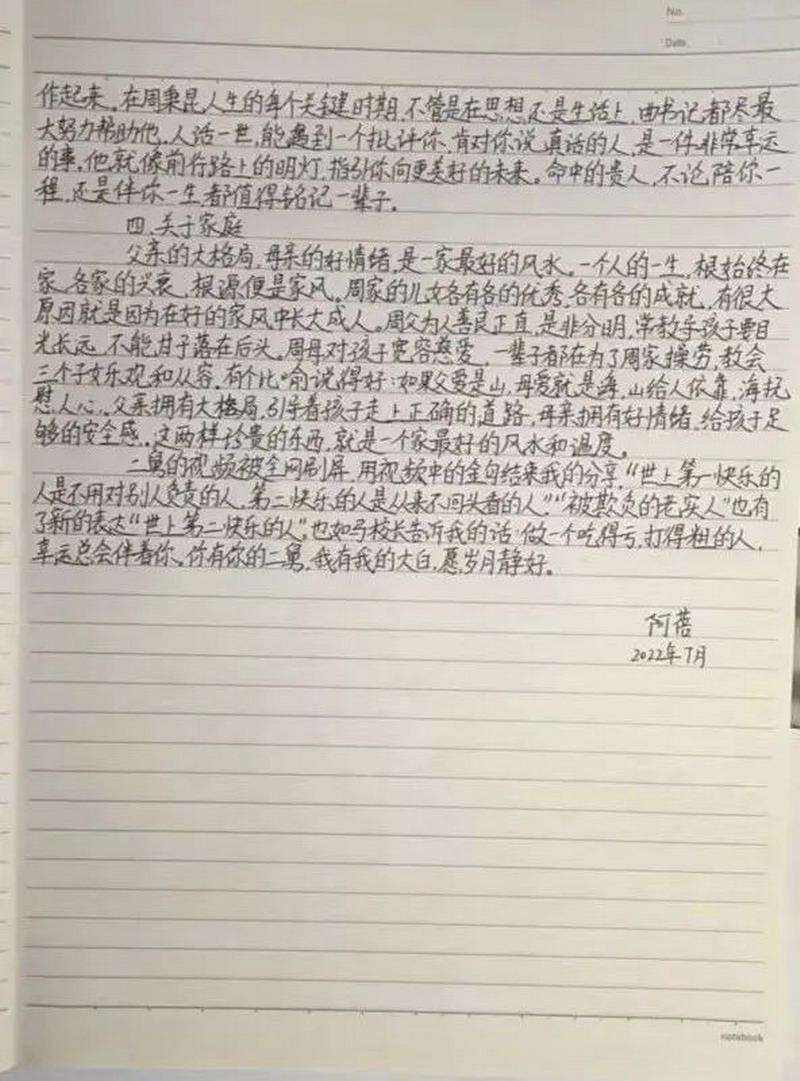 No.
Date.
作起来。在周秉昆人生的每个关键时期,不管是在思想还是生活上,曲书记都尽最
大努力帮助他。人活一世,能遇到一个批评你、肯对你说真话的人,是一件非常幸运
的事。他就像前行路上的明灯,指引你向更美好的未来。命中的贵人,不论陪你一
程,还是伴你一生都值得铭记一辈子。
四、关于家庭
父亲的大格局,母亲的好情绪,是一家最好的风水。一个人的一生,根始终在
家,各家的兴衰,根源便是家风。周家的儿女各有各的优秀,各有各的成就,有很大
原因就是因为在好的家风中长大成人。周父为人善良正直,是非分明,常教导孩子要目
光长远,不能甘于落在后头。周母对孩子宽容慈爱,一辈子都在为了周家操劳,教会
三个子女乐观和从容。有个比喻说得好:如果父爱是山,母爱就是海,山给人依靠,海抚
慰人心。父亲拥有大格局,引导着孩子走上正确的道路,母亲拥有好情绪,给孩子足
够的安全感。这两样珍贵的东西,就是一个家最好的风水和温度。
二舅的视频被全网刷屏,用视频中的金句结束我的分享,“世上第一快乐的
人是不用对别人负责的人,第二快乐的人是从来不回头看的人”“被欺负的老实人”也有
了新的表达“世上第二快乐的人”。也如弓校长告诉我的话,做一个吃得亏,打得粗的人,
幸运总会伴着你。你有你的二舅,我有我的大白,愿岁月静好。
阿蓓
2022年7月
notebook